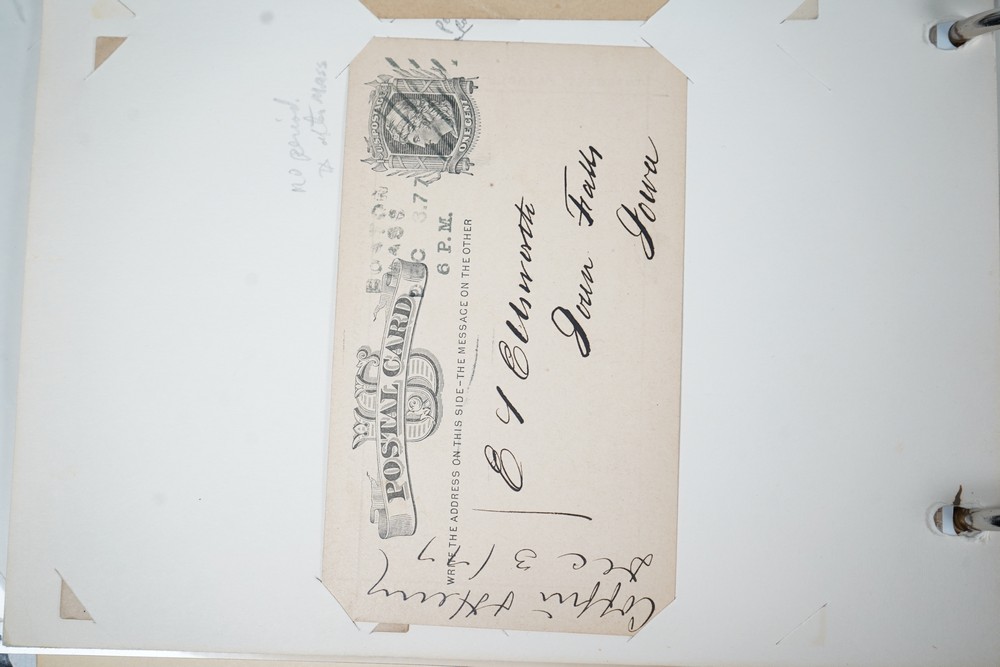 U.S. POSTAGE
ONE CENT
BOSTON
MASS
DEC 3.77
6 P.M.
POSTAL CARD
WRITE THE ADDRESS ON THIS SIDE-THE MESSAGE ON THE OTHER
E S Ellsworth
Iowa Falls
Iowa
Coffin & Henry
Dec 3/77
no period